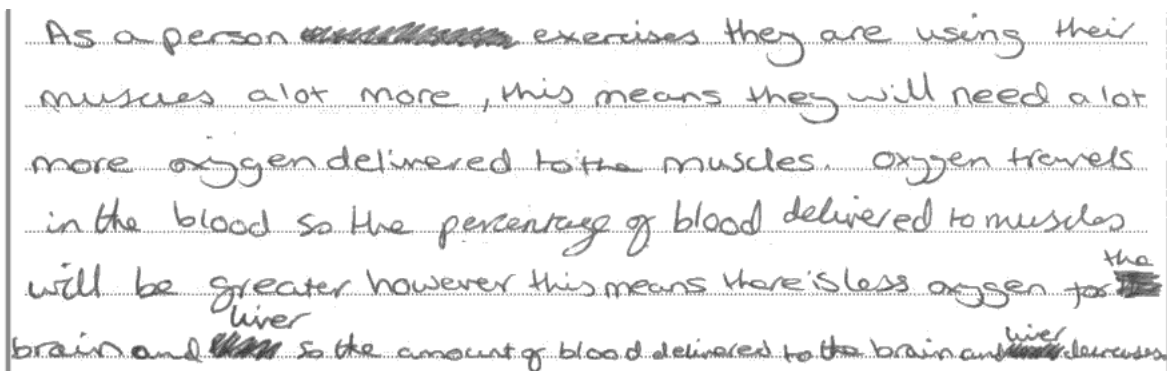 As a person exercises they are using their
muscles alot more, this means they will need alot
more oxygen delivered to the muscles. oxygen travels
in the blood so the percentage of blood delivered to muscles
will be greater however this means there is less oxygen for the
brain and liver so the amount of blood delivered to the brain and liver decreases